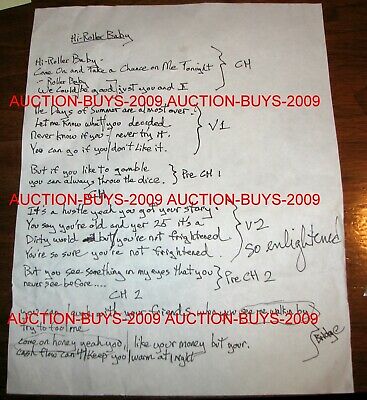 Hi-Roller Baby
Hi-Roller Baby -
Come On and Take a Chance on Me Tonight
- Roller Baby
We could be good just you and I
CH
AUCTION-BUYS-2009 AUCTION-BUYS-2009
The Days of Summer are almost over.
Let me know what you decided
Never know if you - never try it.
You can go if you don't like it.
V1
But if you like to gamble
you can always throw the dice.
Pre CH 1
CH
AUCTION-BUYS-2009 AUCTION-BUYS-2009
It's a hustle yeah you got your story.
You say you're old and yer 25 it's a
Dirty world but you're not frightened
You're so sure you're not frightened.
V-2
so enlightened
But you see something in my eyes that you
never see before....
Pre CH 2
CH 2
AUCTION-BUYS-2009 AUCTION-BUYS-2009
you can laugh with your friends who you see me walky by
Try to tool me
come on honey yeah you like your money but your
cash flow can't keep you warm at night
Bridge